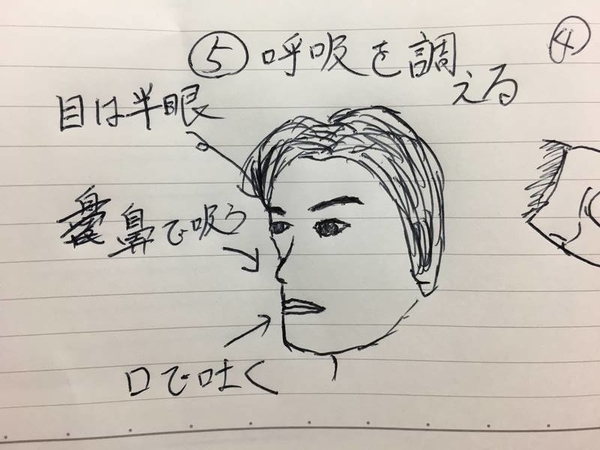 ⑤ 呼吸を調
える
④
目は半眼
鼻で吸う
口で吐く